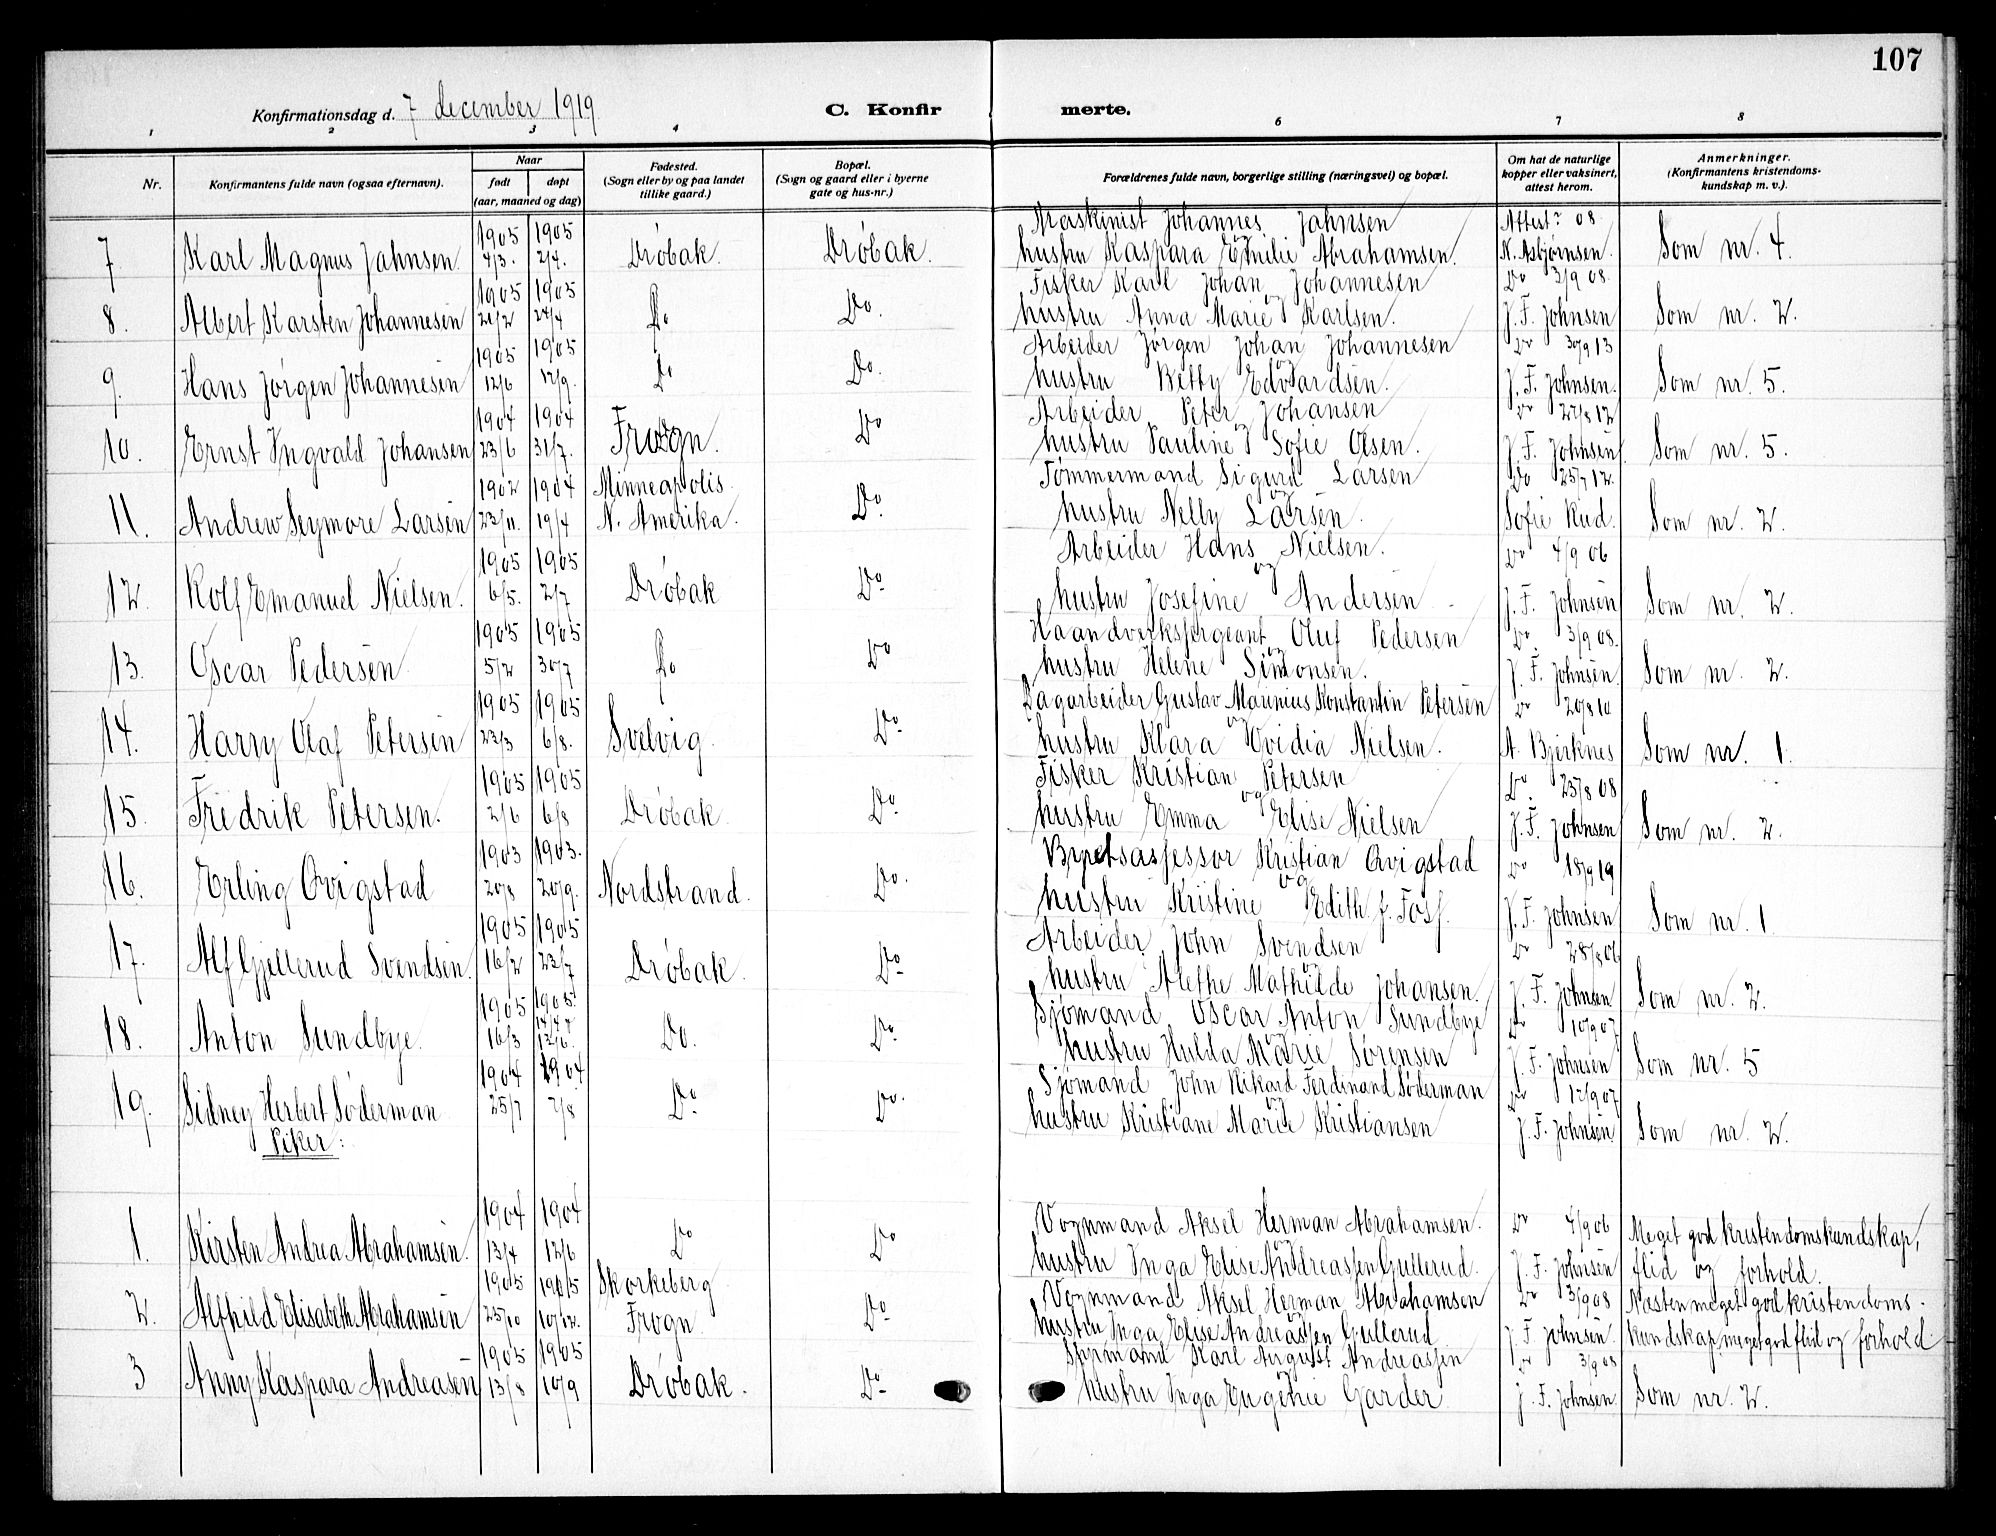 107
Konfirmationsdag d. 7 december 1919 C. Konfirmerte.
1 2 3 4 6 7 8
Nr. Konfirmantens fulde navn (ogsaa efternavn). Naar født døpt (aar, maaned og dag) Fødested. (Sogn eller by og paa landet tillike gaard.) Bopæl. (Sogn og gaard eller i byerne gate og hus-nr.) Forældrenes fulde navn, borgerlige stilling (næringsvei) og bopæl. Om hat de naturlige kopper eller vaksinert, attest herom. Anmerkninger. (Konfirmantens kristendoms-kundskap m. v.).
7 Karl Magnus Jahnsen. 1905 4/3. 1905 2/4. Drøbak. Drøbak. Maskinist Johannes Jahnsen og
hustru Kaspara Emilie Abrahamsen. Attest 08 N. Asbjørnsen. Som nr. 4.
8. Albert Karsten Johannesen 1905 21/2 1905 24/4 Do Do. Fisker Karl Johan Johannesen og
hustru Anna Marie Karlsen. Do 3/9 08. J. F. Johnsen Som nr. 2.
9. Hans Jørgen Johannesen 1905 12/6 1905 12/9. Do Do. Arbeider Jørgen Johan Johannesen og
hustru Betty Edvardsen. Do 30/9 13 J. F. Johnsen. Som nr. 5.
10. Ernst Ingvald Johansen 1904 23/6 1904 31/7. Frogn. Do Arbeider Peter Johansen og
hustru Pauline Sofie Olsen. Do 27/8 12 J. F. Johnsen. Som nr. 5.
11. Andrew Seymore Larsen 1902 23/11. 1904 19/4 Minneapolis
N. Amerika. Do. Tømmermand Sigurd Larsen og
hustru Nelly Larsen. Do 25/7 12. Sofie Rud. Som nr. 2.
12. Rolf Emanuel Nielsen. 1905 6/5. 1905 2/7 Drøbak Do Arbeider Hans Nielsen. og
hustru Josefine Andersen Do 4/9 06 J. F. Johnsen Som nr. 2.
13. Oscar Pedersen 1905 5/2 1905 30/7 Do Do Haandverkssergeant Oluf Pedersen og
hustru Helene Simonsen. Do. 3/9 08. J. F. Johnsen. Som nr. 2.
14. Harry Olaf Petersen 1905 23/3 1905 6/8. Svelvig. Do. Dagarbeider Gustav Marinius Konstantin Petersen og
hustru Klara Ovidia Nielsen. Do 20/8 10 A. Bjerknes Som nr. 1.
15. Fredrik Petersen. 1905 2/6 1905 6/8 Drøbak. Do. Fisker Kristian Petersen og
hustru Emma Elise Nielsen Do. 23/8 08 J. F. Johnsen Som nr. 2.
16. Erling Qvigstad 1903 20/8 1903. 20/9. Nordstrand. Do. Byretsassessor Kristian Qvigstad og
hustru Kristine Edith f. Foss. Do 18/9 19 J. F. Johnsen Som nr. 1
17. Alf Gjellerud Svendsen. 1905 16/2 1905 23/7 Drøbak. Do. Arbeider John Svendsen og
hustru Alethe Mathilde Johansen. Do 28/8 06 J. F. Johnsen Som nr. 2.
18. Anton Sundbye. 1905 16/3 1905. 12/6. Do. Do. Sjømand Oscar Anton Sundbye og
hustru Hulda Marie Sørensen Do 10/9 07 J. F. Johnsen Som nr. 5
19. Sidney Herbert Søderman 1904 25/7 1904 7/8 Do. Do. Sjømand John Rikard Ferdinand Søderman og
hustru Kristiane Marie Kristiansen Do 12/9 07 J. F. Johnsen Som nr. 2.
Piker:
1. Kirsten Andrea Abrahamsen. 1904 13/4 1904 12/6 Do Do Vognmand Aksel Herman Abrahamsen. og
hustru Inga Elise Andreassen Gullerud. Do 4/9 06 J. F. Johnsen Meget god kristendomskundskap,
flid og forhold.
2. Alfhild Elisabeth Abrahamsen 1905 25/10 1905 10/12. Skorkeberg
Frogn. Do. Vognmand Aksel Herman Abrahamsen og
hustru Inga Elise Andreassen Gullerud Do 3/9 08 J. F. Johnsen. Næsten meget god kristendoms-
kundskap, meget god flid og forhold
3 Anny Kaspara Andreasen 1905 13/8 1905 10/9 Drøbak. Do. Sjømand Karl August Andreassen og
hustru Inga Eugenie Garder Do 3/9 08 J. F. Johnsen. Som nr. 2.